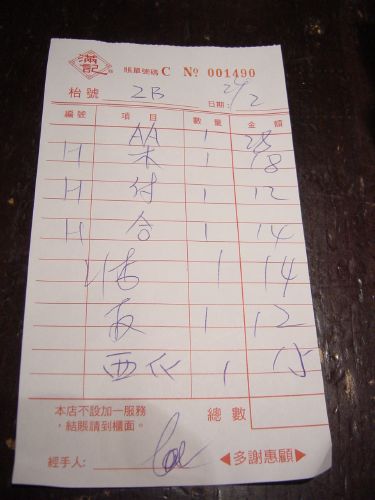 滿記
賬單號碼 C № 001490
枱號 2B 日期: 24/2
編號 項目 數量 金額
AA 1 28
H 木 1 18
H 付 1 12
H 合 1 14
1 14
1 12
西 1 15
本店不設加一服務 總數
，結賬請到櫃面。
經手人: ◀多謝惠顧▶